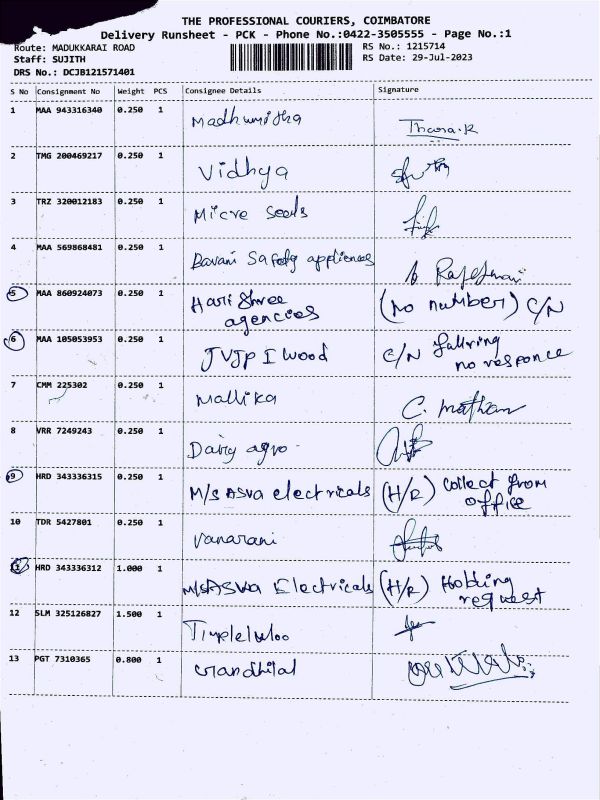 THE PROFESSIONAL COURIERS, COIMBATORE
Delivery Runsheet - PCK - Phone No.:0422-3505555 - Page No.:1
Route: MADUKKARAI ROAD RS No.: 1215714
Staff: SUJITH RS Date: 29-Jul-2023
DRS No.: DCJB121571401
S No Consignment No Weight PCS Consignee Details Signature
1 MAA 943316340 0.250 1 Madhumitha Thara.R
2 TMG 200469217 0.250 1 Vidhya
3 TRZ 320012183 0.250 1 Micre Seeds
4 MAA 569868481 0.250 1 Bavani Safety appliences
5 MAA 860924073 0.250 1 Hari Shree (no number) C/N
agencies
6 MAA 105053953 0.250 1 JVJP I wood C/N
no responce
7 CMM 225302 0.250 1 Mallika C. Mathan
8 VRR 7249243 0.250 1 Dairy agro
9 HRD 343336315 0.250 1 M/s ASVA electricals (H/R) Collect from
office
10 TDR 5427801 0.250 1 Vanarani
11 HRD 343336312 1.000 1 M/s ASWA Electricals (H/R) Holding
request
12 SLM 325126827 1.500 1
13 PGT 7310365 0.800 1 Gandhilal